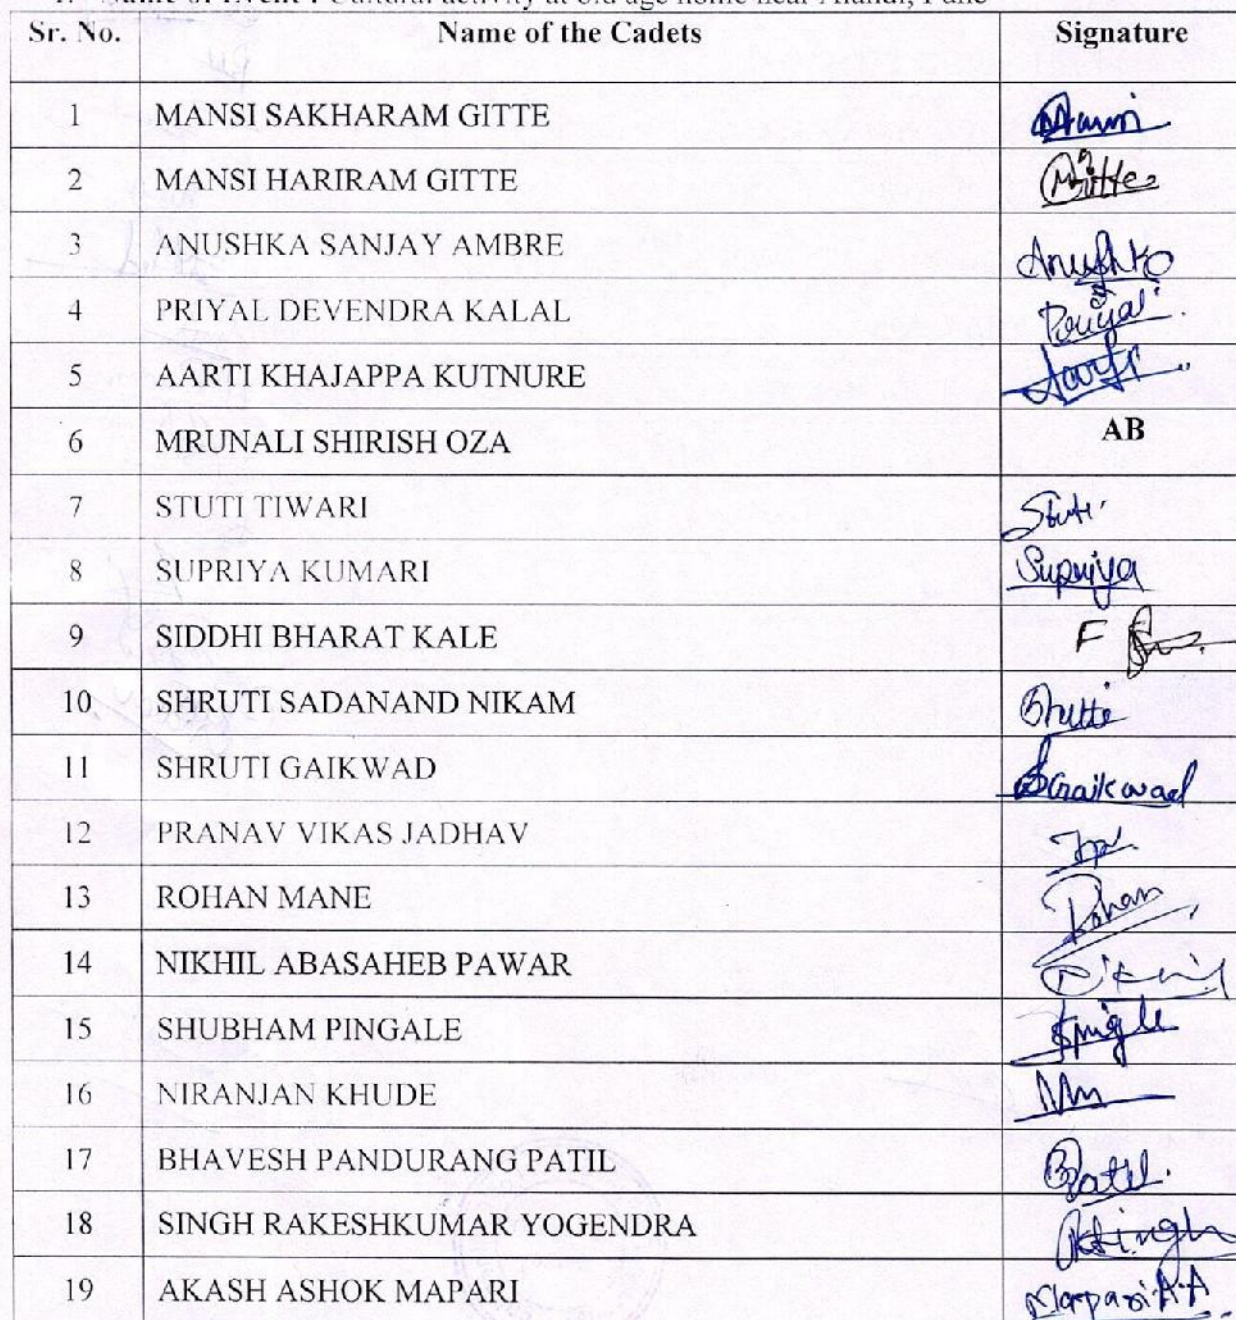 Name of Event : Cultural activity at old age home near Alandi, Pune
Sr. No. Name of the Cadets Signature
1 MANSI SAKHARAM GITTE
2 MANSI HARIRAM GITTE Gitte
3 ANUSHKA SANJAY AMBRE Anushka
4 PRIYAL DEVENDRA KALAL Priyal
5 AARTI KHAJAPPA KUTNURE Aarti
6 MRUNALI SHIRISH OZA AB
7 STUTI TIWARI Stuti
8 SUPRIYA KUMARI Supriya
9 SIDDHI BHARAT KALE F
10 SHRUTI SADANAND NIKAM
11 SHRUTI GAIKWAD SGaikwad
12 PRANAV VIKAS JADHAV
13 ROHAN MANE Rohan
14 NIKHIL ABASAHEB PAWAR Nikhil
15 SHUBHAM PINGALE
16 NIRANJAN KHUDE
17 BHAVESH PANDURANG PATIL BPatil.
18 SINGH RAKESHKUMAR YOGENDRA RSingh
19 AKASH ASHOK MAPARI Mapari A.A